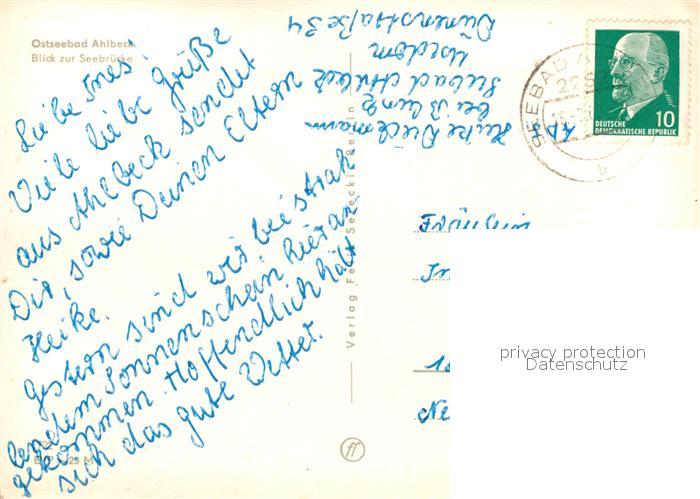 Ostseebad Ahlbeck
Blick zur Seebrücke
Liebe Ines!
Viele liebe Grüße
aus Ahlbeck sendet
Dir, sowie Deinen Eltern
Heike.
Gestern sind wir bei strah-
lendem Sonnenschein hier an-
gekommen. Hoffendlich hält
sich das gute Wetter.
Heike Dieckmann
bei Blunz
Seebad Ahlbeck
Usedom
Dünenstraße 34
Verlag
Berlin
SEEBAD
DEUTSCHE
DEMOKRATISCHE REPUBLIK
10
b
Fräulein
In
18
Ne
privacy protection
Datenschutz